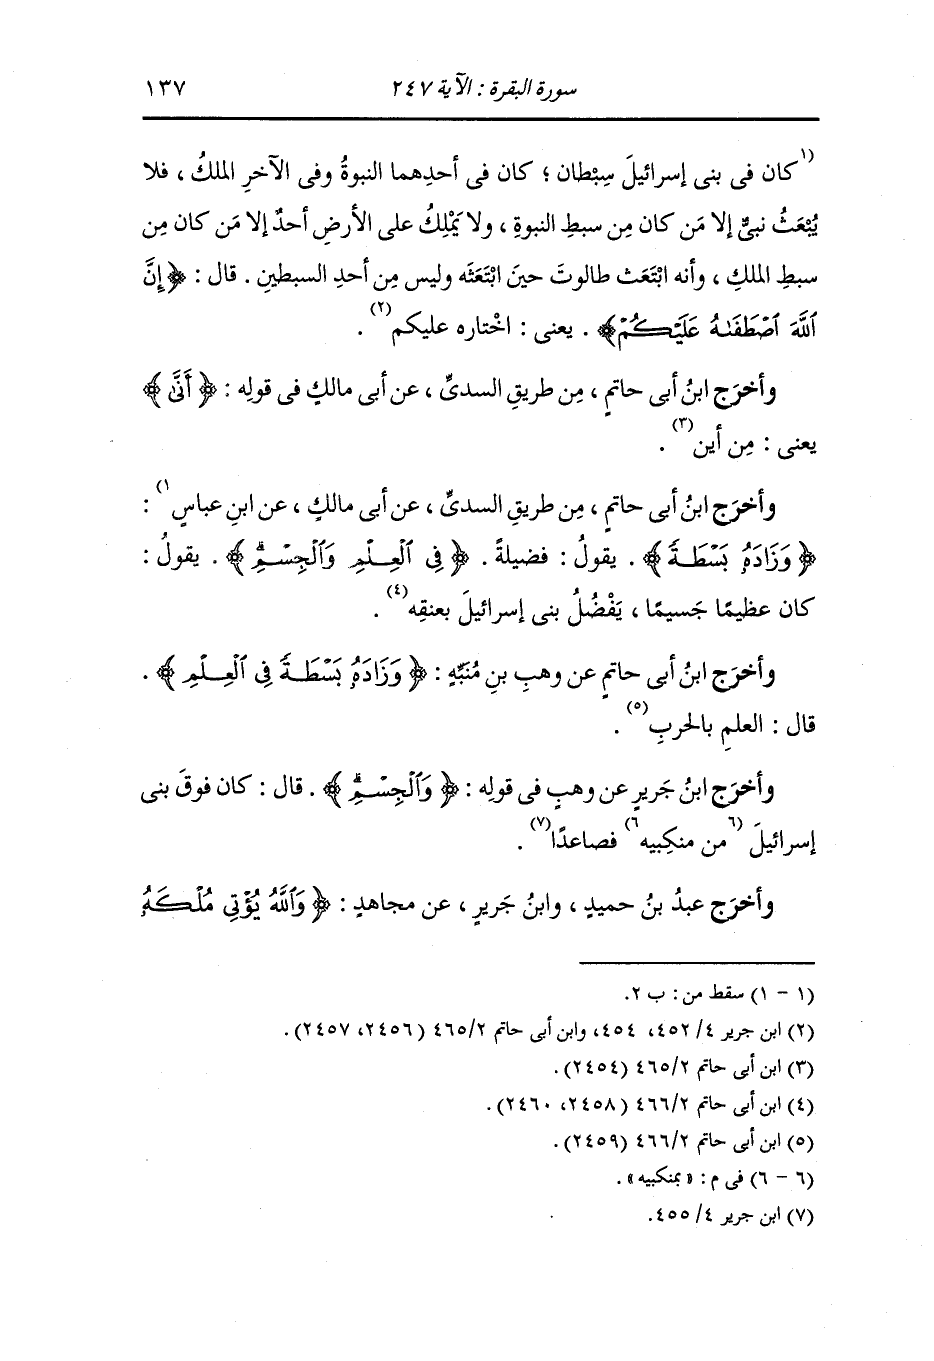 سورة البقرة : الآية ٢٤٧ ١٣٧
(١كان فى بنى إسرائيلَ سِبْطان ؛ كان فى أحدِهما النبوةُ وفى الآخرِ الملكُ ، فلا
يُبْعَثُ نبىٌّ إلا مَن كان مِن سبطِ النبوةِ ، ولا يَمْلِكُ على الأرضِ أحدٌ إلا مَن كان مِن
سبطِ الملكِ ، وأنه ابْتَعَث طالوتَ حينَ ابْتَعَثَه وليس مِن أحدِ السبطينِ . قال : ﴿إِنَّ
ٱللَّهَ ٱصْطَفَىٰهُ عَلَيْكُمْ﴾ . يعنى : اخْتاره عليكم(٢) .
وأخرَج ابنُ أبى حاتمٍ ، مِن طريقِ السدىِّ ، عن أبى مالكٍ فى قولِه : ﴿أَنَّىٰ﴾
يعنى : مِن أين(٣) .
وأخرَج ابنُ أبى حاتمٍ ، مِن طريقِ السدىِّ ، عن أبى مالكٍ ، عن ابنِ عباسٍ١) :
﴿وَزَادَهُۥ بَسْطَةً﴾ . يقولُ : فضيلةً . ﴿فِى ٱلْعِلْمِ وَٱلْجِسْمِۖ﴾ . يقولُ :
كان عظيمًا جَسيمًا ، يَفْضُلُ بنى إسرائيلَ بعنقِه(٤) .
وأخرَج ابنُ أبى حاتمٍ عن وهبِ بنِ مُنَبِّهٍ : ﴿وَزَادَهُۥ بَسْطَةً فِى ٱلْعِلْمِ﴾ .
قال : العلمِ بالحربِ(٥) .
وأخرَج ابنُ جَريرٍ عن وهبٍ فى قولِه : ﴿وَٱلْجِسْمِۖ﴾ . قال : كان فوقَ بنى
إسرائيلَ (٦من منكِبيه٦) فصاعدًا(٧) .
وأخرَج عبدُ بنُ حميدٍ ، وابنُ جَريرٍ ، عن مجاهدٍ : ﴿وَٱللَّهُ يُؤْتِى مُلْكَهُۥ
(١ - ١) سقط من : ب ٢.
(٢) ابن جرير ٤/ ٤٥٢، ٤٥٤، وابن أبى حاتم ٤٦٥/٢ (٢٤٥٦، ٢٤٥٧).
(٣) ابن أبى حاتم ٤٦٥/٢ (٢٤٥٤).
(٤) ابن أبى حاتم ٤٦٦/٢ (٢٤٥٨، ٢٤٦٠).
(٥) ابن أبى حاتم ٤٦٦/٢ (٢٤٥٩).
(٦ - ٦) فى م : « بمنكبيه » .
(٧) ابن جرير ٤/ ٤٥٥.